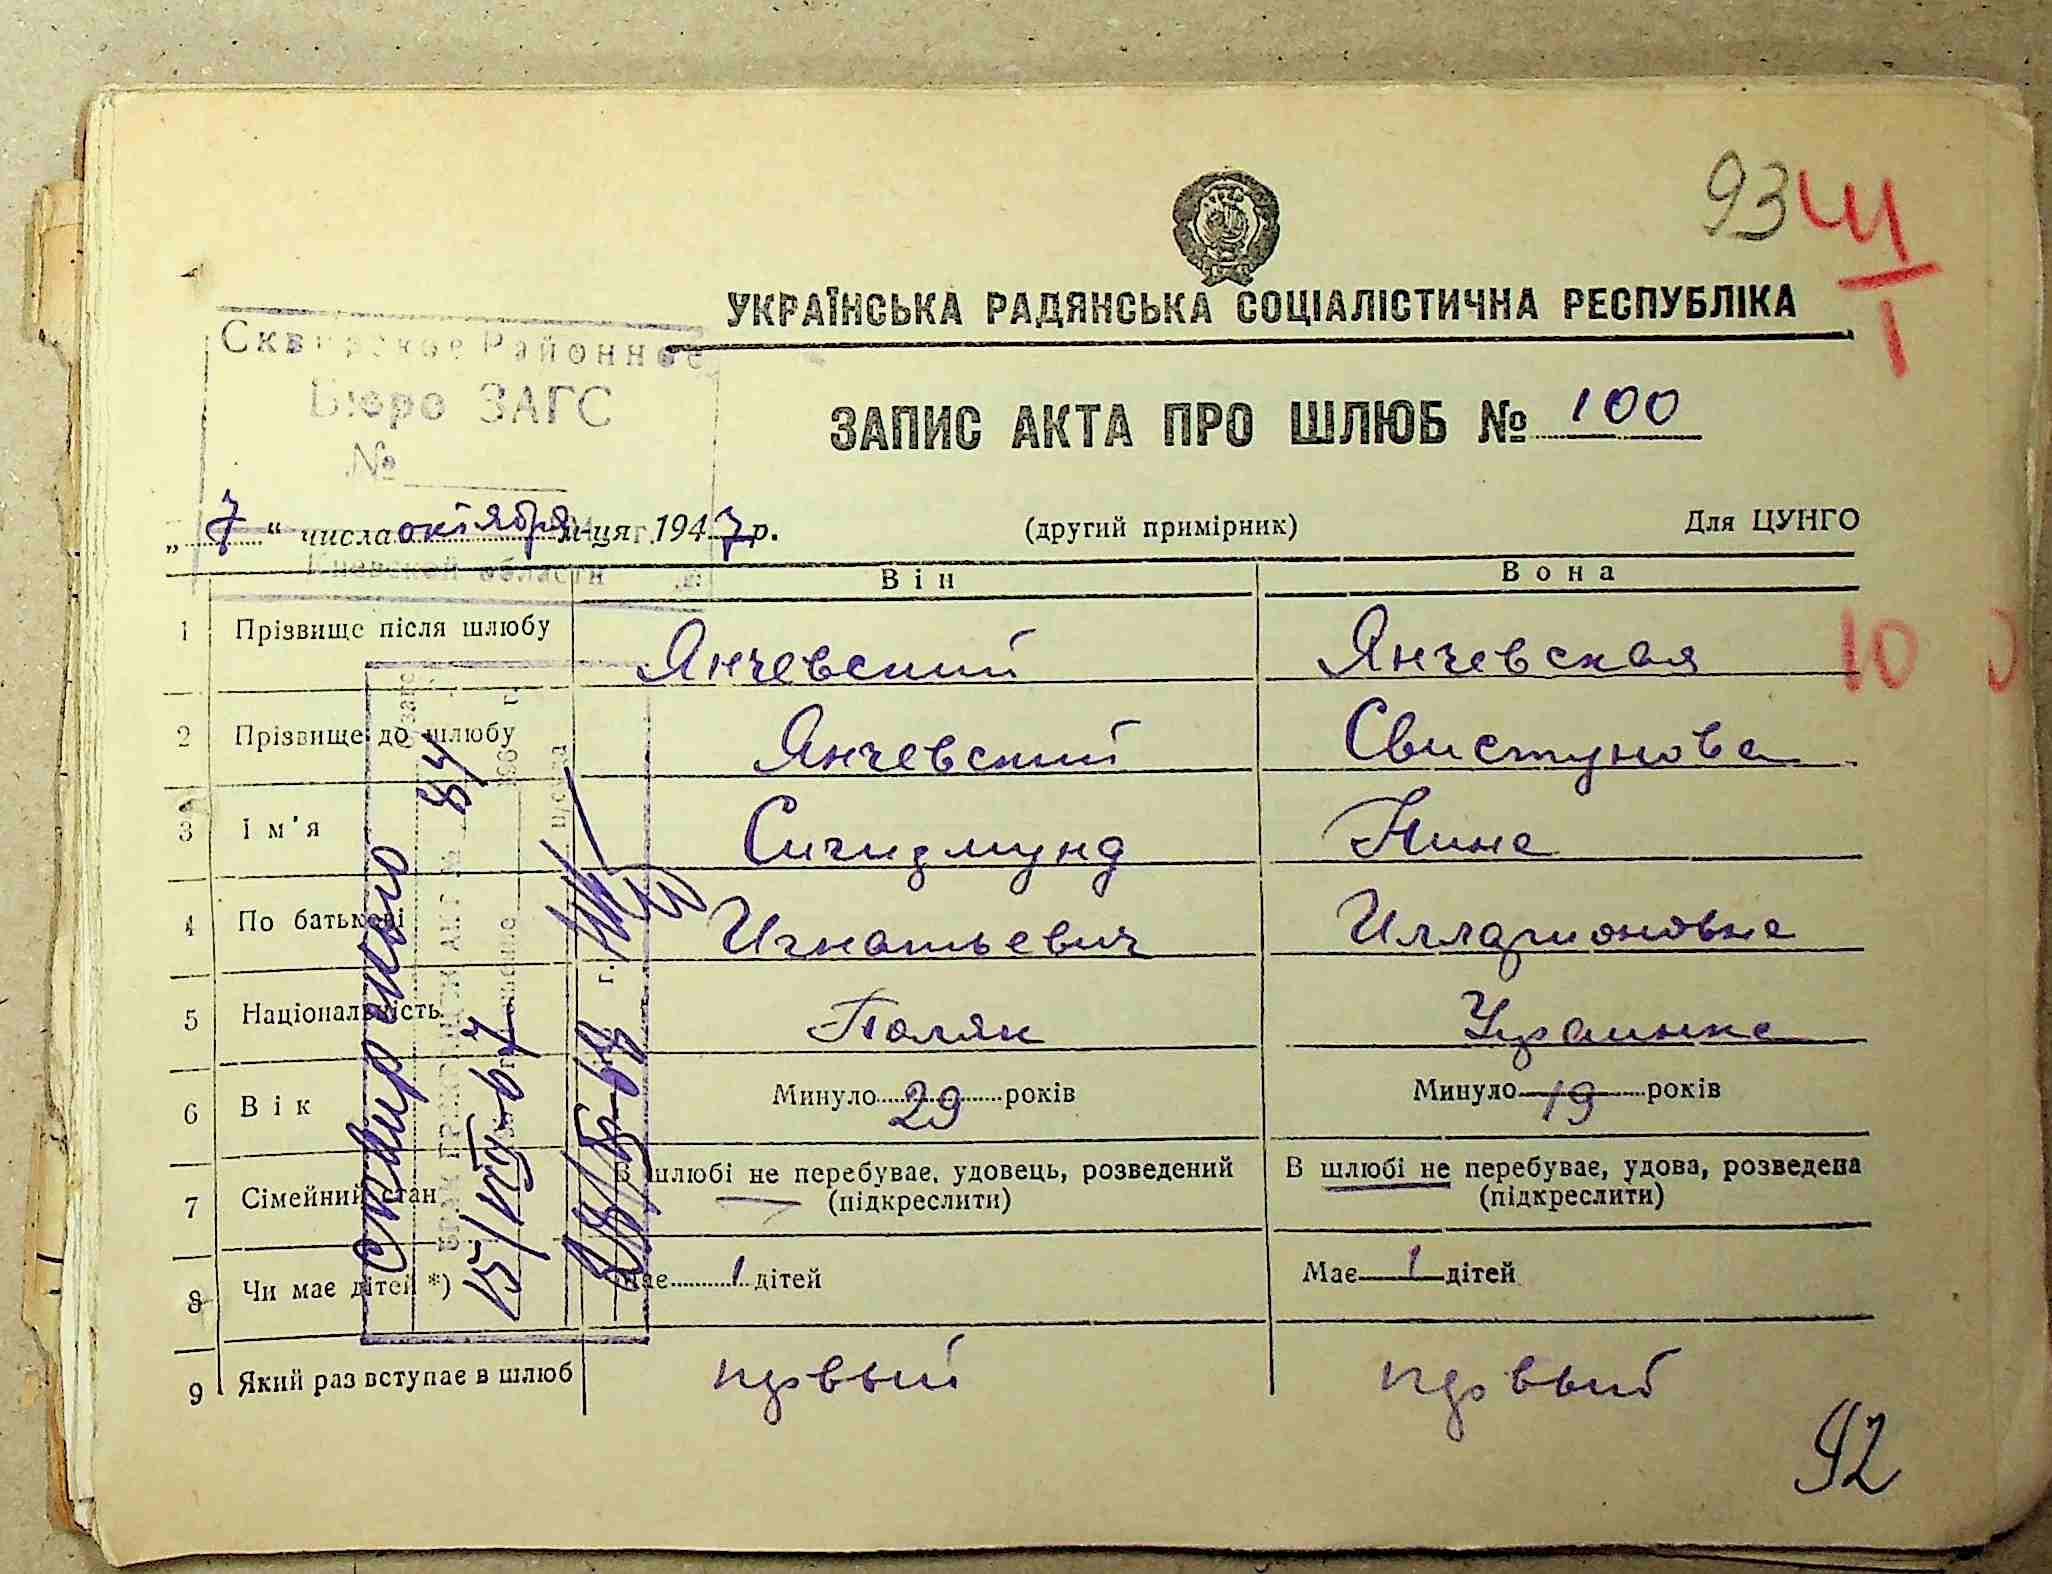 93
УКРАЇНСЬКА РАДЯНСЬКА СОЦІАЛІСТИЧНА РЕСПУБЛІКА
Сквирское Районное
Бюро ЗАГС
№
ЗАПИС АКТА ПРО ШЛЮБ № 100
„ 7 “ числа октября м-ця 1947 р.
(другий примірник)
Для ЦУНГО
Киевской области
Він Вона
1 Прізвище після шлюбу Янчевский Янчевская
100
2 Прізвище до шлюбу Янчевский Свистунова
3 Ім'я Сигизмунд Нина
4 По батькові Игнатьевич Илларионовна
5 Національність Поляк Украинка
6 Вік Минуло 29 років Минуло 19 років
7 Сімейний стан В шлюбі не перебуває, удовець, розведений (підкреслити) В шлюбі не перебуває, удова, розведена (підкреслити)
8 Чи має дітей *) Має 1 дітей Має 1 дітей
9 Який раз вступає в шлюб первый первый
92